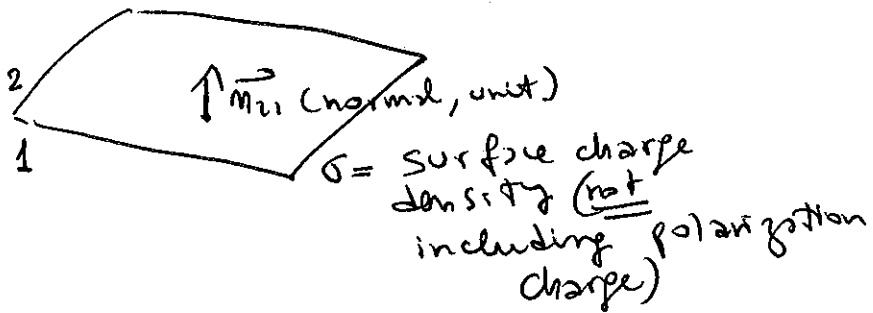 2
↑ n⃗₂₁ (normal, unit)
1
σ = surface charge
density (not
including polarization
charge)